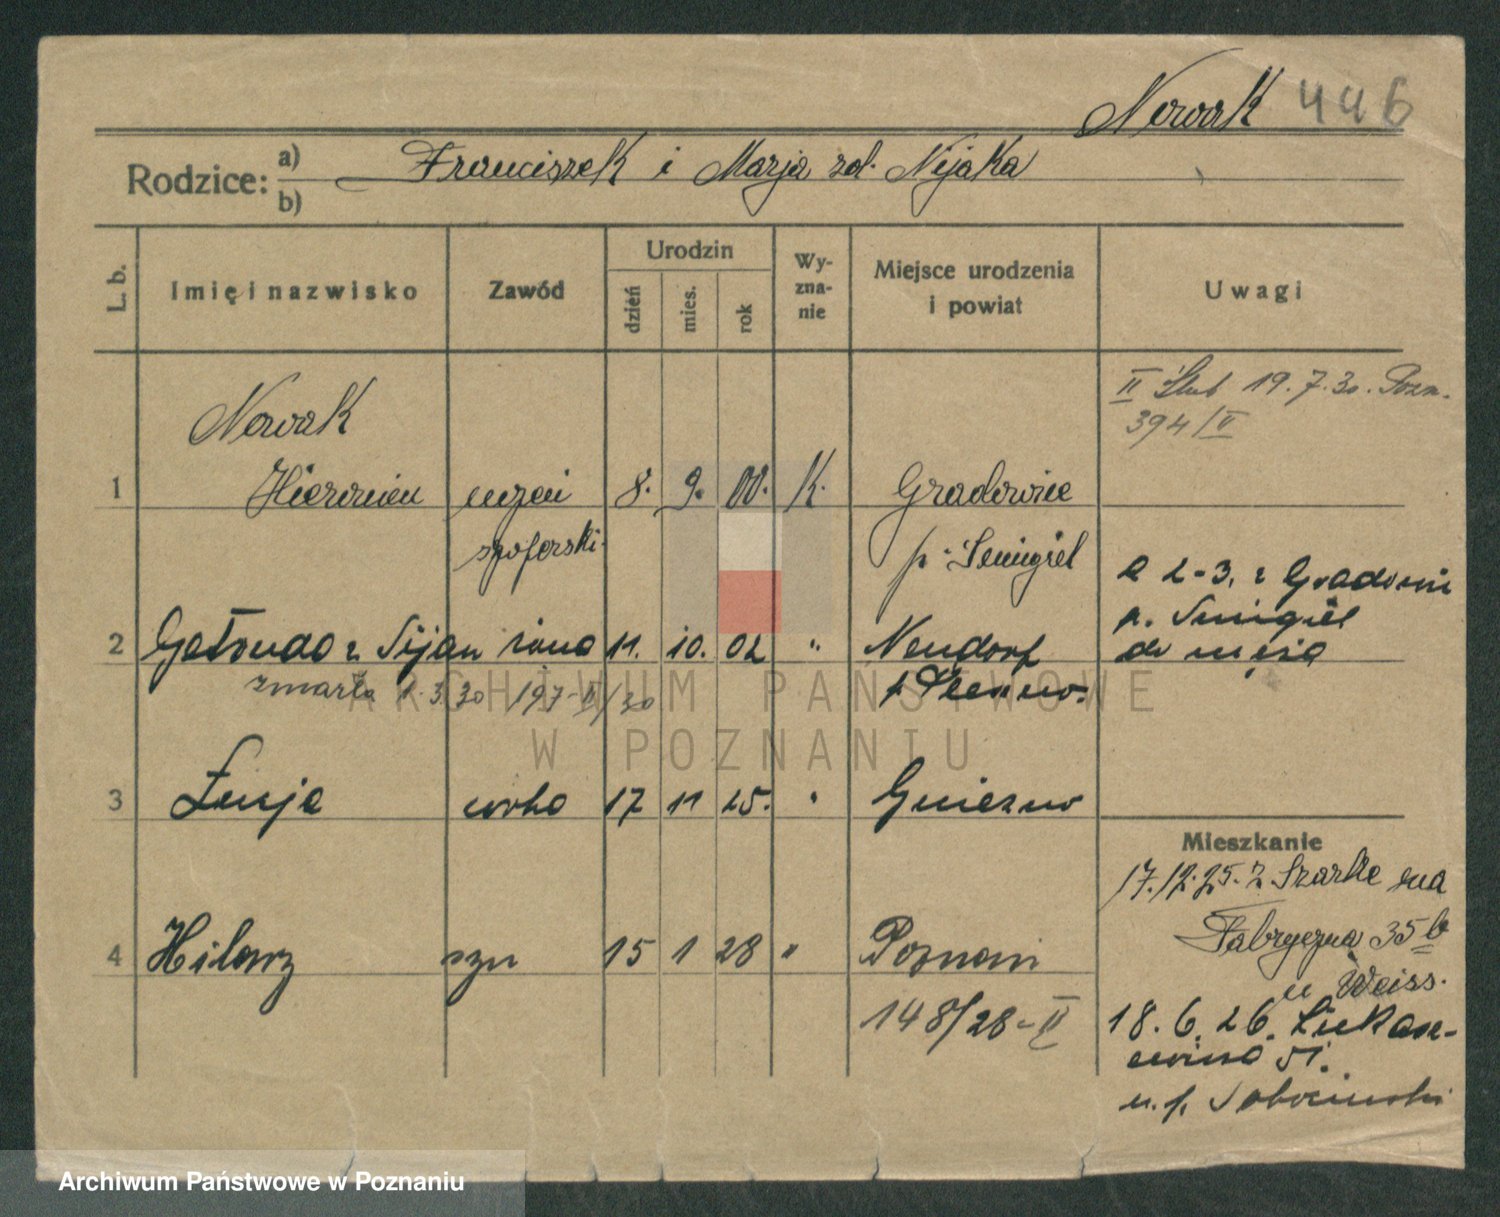 Nowak 446
Rodzice: a) Franciszek i Marja
b)
L. b. Imię i nazwisko Zawód Urodzin dzień mies. rok Wyznanie Miejsce urodzenia i powiat Uwagi
II Ślub 19.7.30. Pozn.
394/II
Nowak
1 Hieronim uczeń 8. 9. 00. K. Gradowice
szoferski p. Śmigiel
a 2-3, z Gradowic
p. Śmigiel
do męża
2 z Sijan żona 11. 10. 02 " Neudorf
zmarła 1.3.30 197-II/30 p.
3 Łucja córka 17 11 25. " Gniezno
Mieszkanie
17.12.25. z na
Fabryczna 35b
u Weiss.
4 Hilary syn 15 1 28 " Poznań
148/28-II
18.6.26. Łukasz-
ewicza 51.
u. p. Sobocinski
ARCHIWUM PAŃSTWOWE
W POZNANIU
Archiwum Państwowe w Poznaniu